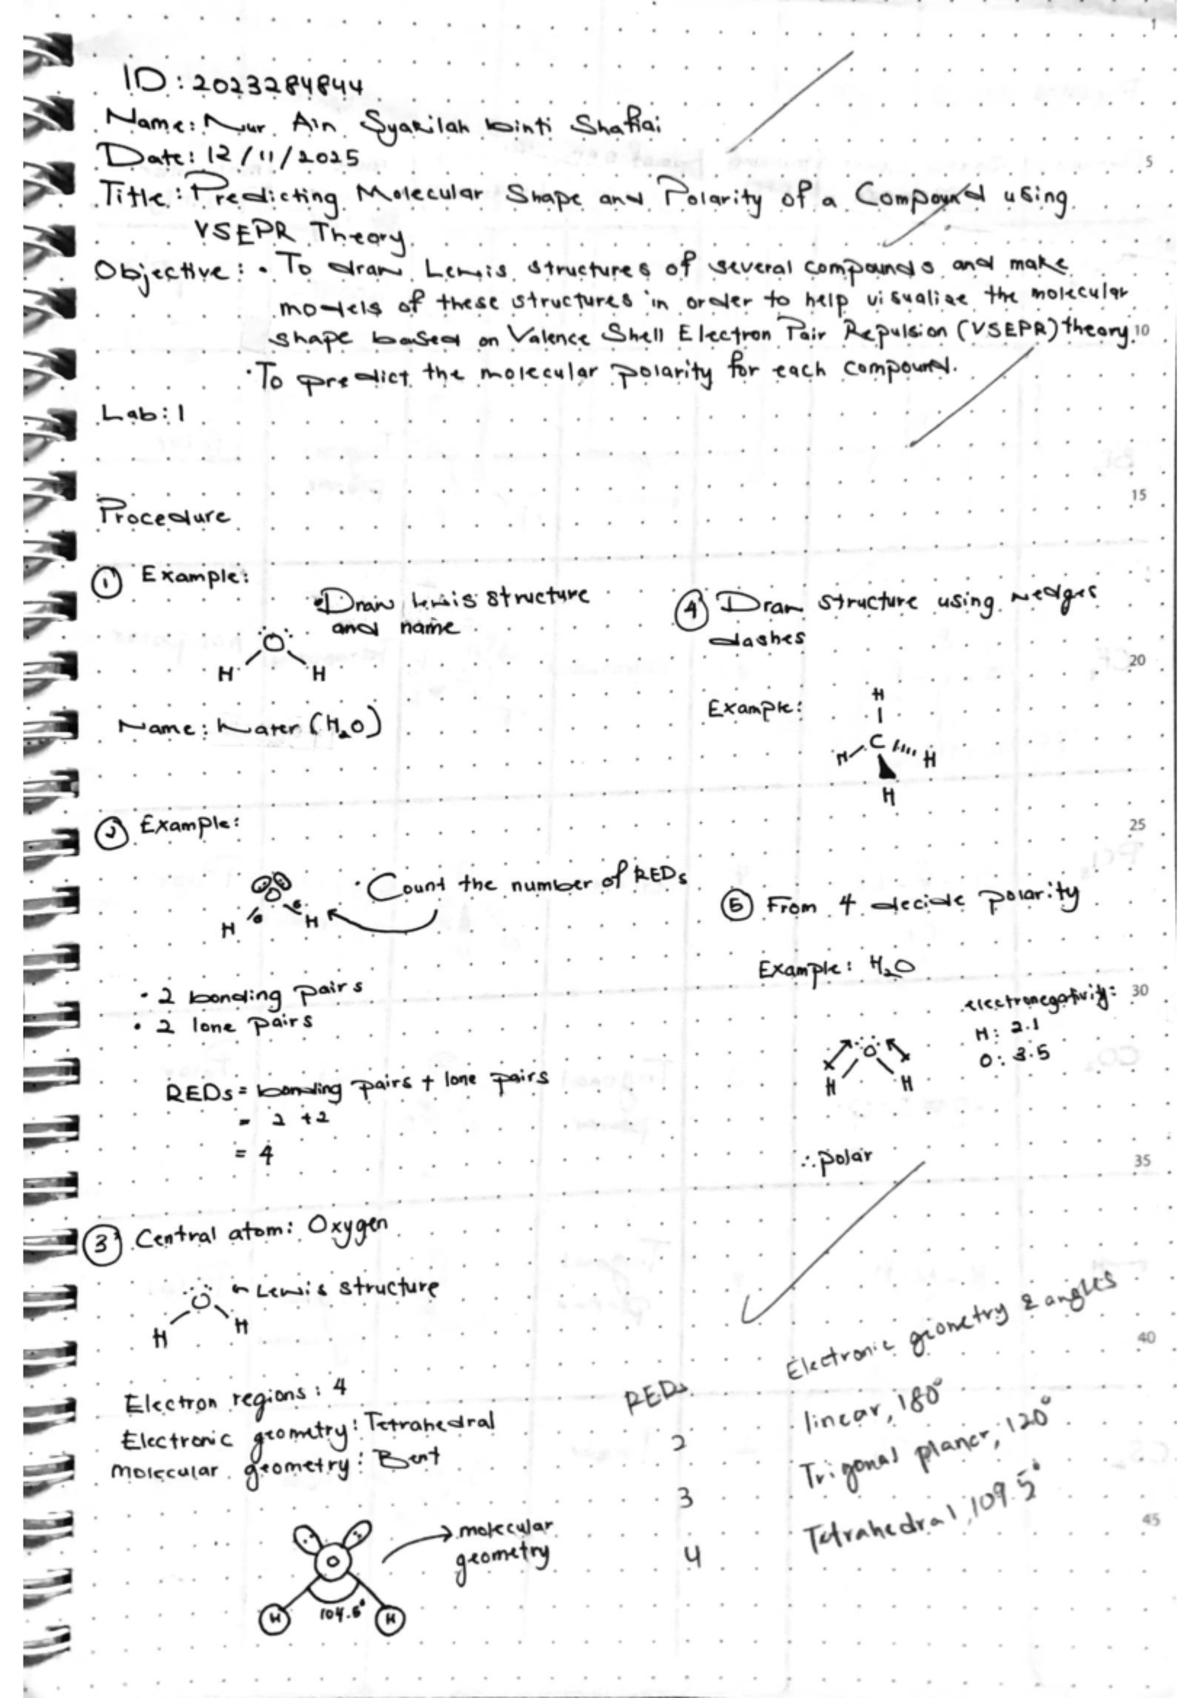 ID: 2023284844
Name: Nur Ain Syakilah binti Shafiai
Date: 12/11/2025
Title: Predicting Molecular Shape and Polarity of a Compound using
VSEPR Theory
Objective: • To draw Lewis structures of several compounds and make
models of these structures in order to help visualize the molecular
shape based on Valence Shell Electron Pair Repulsion (VSEPR) theory.
• To predict the molecular polarity for each compound.
Lab: 1
Procedure
① Example:
• Draw Lewis structure
and name
O
H H
Name: Water (H₂O)
② Example:
• Count the number of REDs
O
H H
• 2 bonding pairs
• 2 lone pairs
REDs = bonding pairs + lone pairs
= 2 + 2
= 4
③ Central atom: Oxygen
Lewis structure
O
H H
Electron regions: 4
Electronic geometry: Tetrahedral
Molecular geometry: Bent
molecular
geometry
O
H 104.5° H
④ Draw structure using wedges
dashes
Example:
H
C
H H
H
⑤ From 4 decide polarity
Example: H₂O
electronegativity:
H: 2.1
O: 3.5
O
H H
∴ polar
REDs Electronic geometry & angles
2 linear, 180°
3 Trigonal planar, 120°
4 Tetrahedral, 109.5°
1
5
10
15
20
25
30
35
40
45